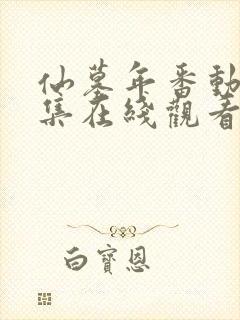 仙墓年番動
集在綫觀看
白寶恩